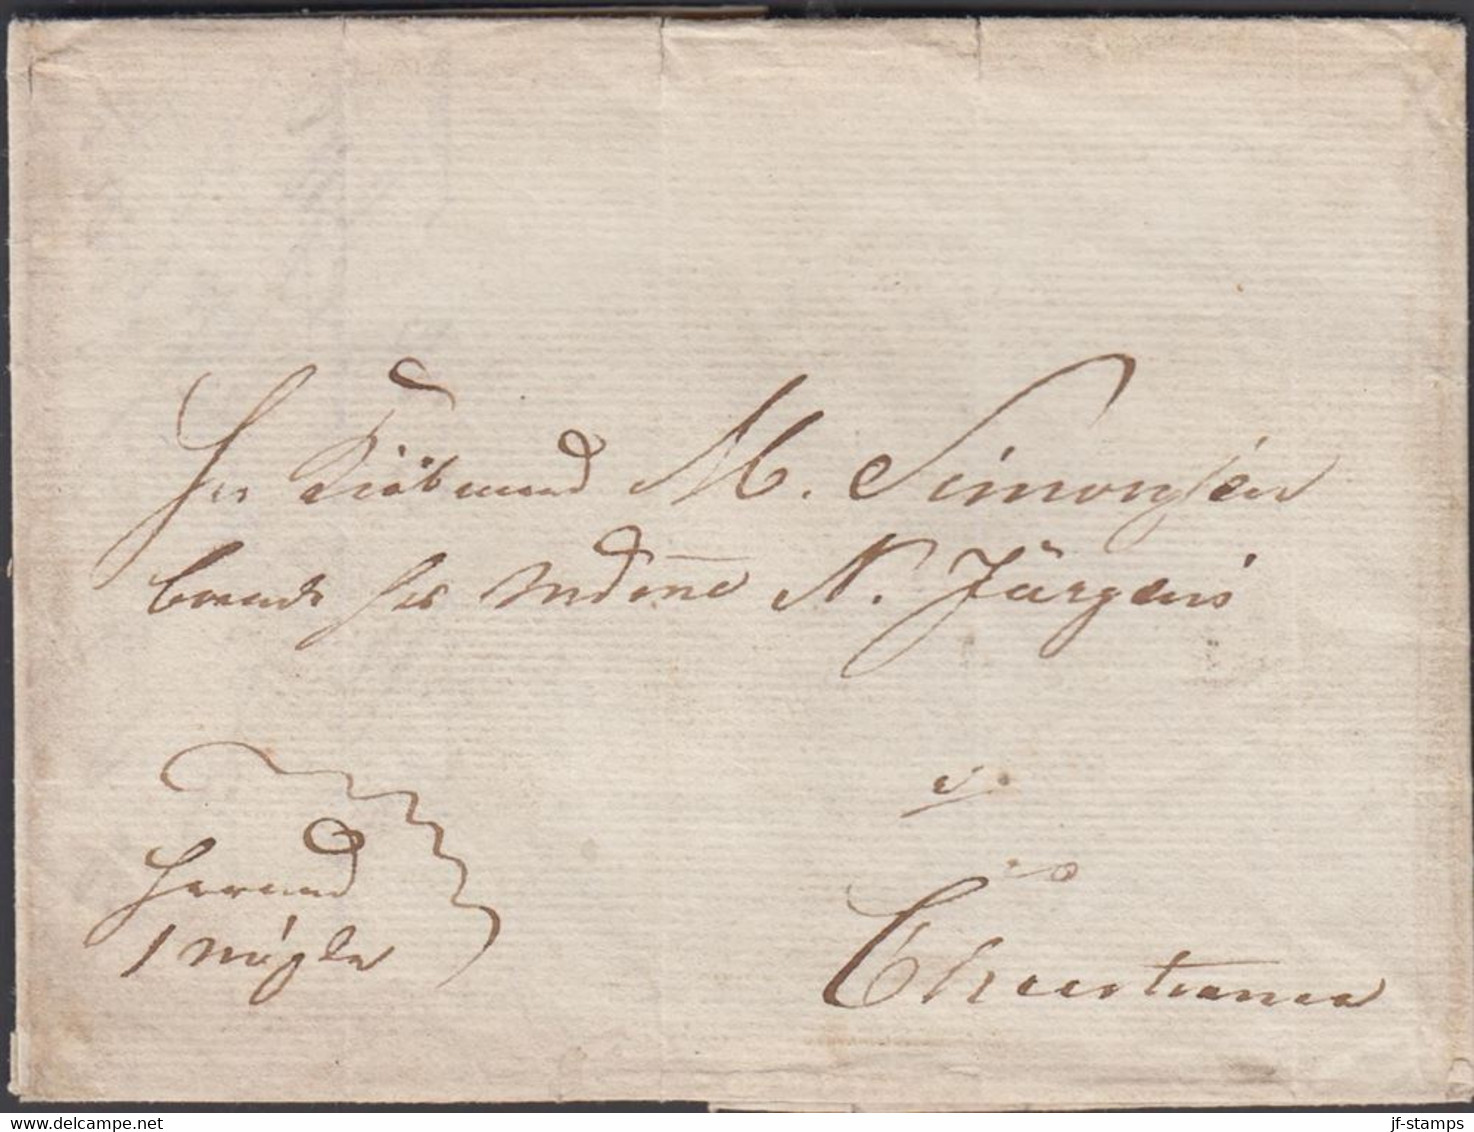 Hr Kiöbmand M. Simonsen
hr Madme N. Jürgens
i
Christiania
herved
1 nögle
www.delcampe.net
jf-stamps